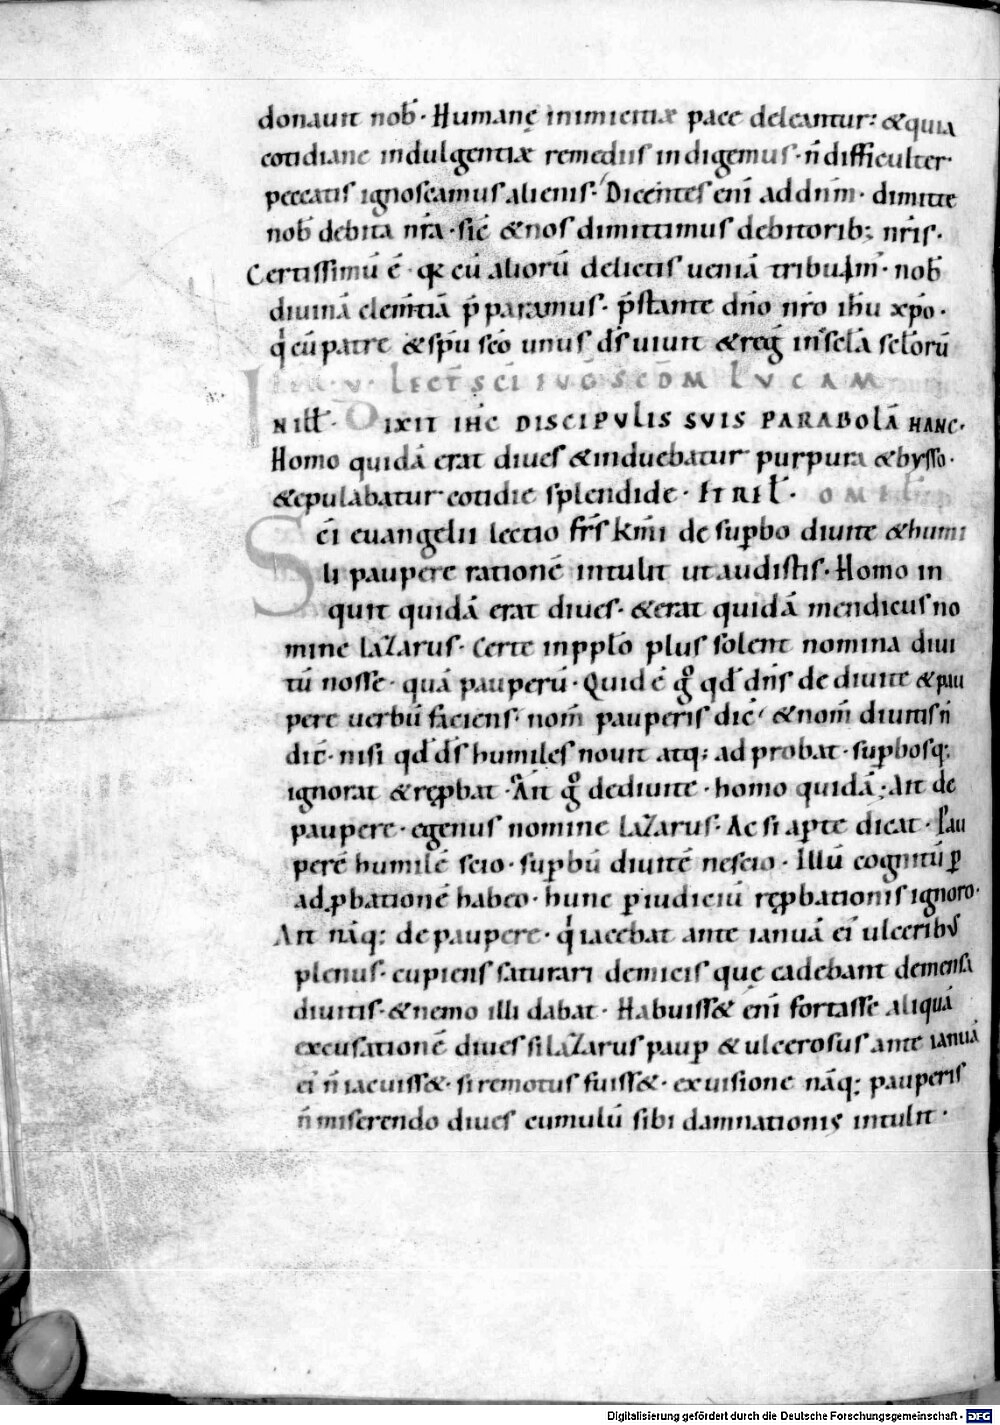 donauit nob̄· Humanę inimicitiæ pace deleantur: &quia
cotidiane indulgentiæ remediis indigemus· n̄ difficulter·
peccatis ignoscamus alienis· Dicentes eni̅ ad dn̅m· dimitte
nob̄ debita nr̅a· sic̄ & nos dimittimus debitorib; nr̅is·
Certissimu̅ e̅· cu̅ alioru̅ delictis uenia̅ nob̄
diuina̅ p̄paramus· p̄stante dn̅o nr̅o ihu̅ xp̅o·
q cu̅ patre & sp̅u sc̅o unus ds̅ uiuit & reg̅ in sc̅la sc̅loru̅
LECT SC̅I SCDM LVCAM
IN ILL̅· DIXIT IHC DISCIPVLIS SVIS PARABOLA̅ HANC·
Homo quida̅ erat diues & induebatur purpura & bysso·
& epulabatur cotidie splendide· ET RIL̅· OMIL̅
Sc̅i euangelii lectio fr̅s km̅i de sup̲bo diuite & humi
li paupere ratione̅ intulit ut audistis· Homo in
quit quida̅ erat diues· & erat quida̅ mendicus no
mine lazarus· Certe in pplo̅ plus solent nomina diui
tu̅ nosse· qua̅ pauperu̅· Quid e̅ g° qd̅ dn̅s de diuite & pau
pere uerbu̅ faciens· nom̅ pauperis dic̄· & nom̅ diuitis n̄
dic̄· nisi qd̅ ds̅ humiles nouit atq; adprobat· sup̲bosq;
ignorat & rep̲bat· Ait g° de diuite· homo quida̅; Ait de
paupere· egenus nomine lazarus· Ac si ap̲te dicat· Pau
pere̅ humile̅ scio· sup̲bu̅ diuite̅ nescio· Illu̅ cognitu̅ p̲
adp̲batione̅ habeo· hunc p̲ iudiciu̅ rep̲bationis ignoro·
Ait na̅q; de paupere· q iacebat ante ianua̅ ei̅ ulceribus
plenus· cupiens saturari de micis quę cadebant de mensa
diuitis· & nemo illi dabat· Habuiss& eni̅ fortasse aliqua̅
excusatione̅ diues si lazarus paup̲ & ulcerosus ante ianua̅
ei̅ n̄ iacuiss&· si remotus fuiss&· ex uisione na̅q; pauperis
n̄ miserendo diues cumulu̅ sibi damnationis intulit·
Digitalisierung gefördert durch die Deutsche Forschungsgemeinschaft - DFG